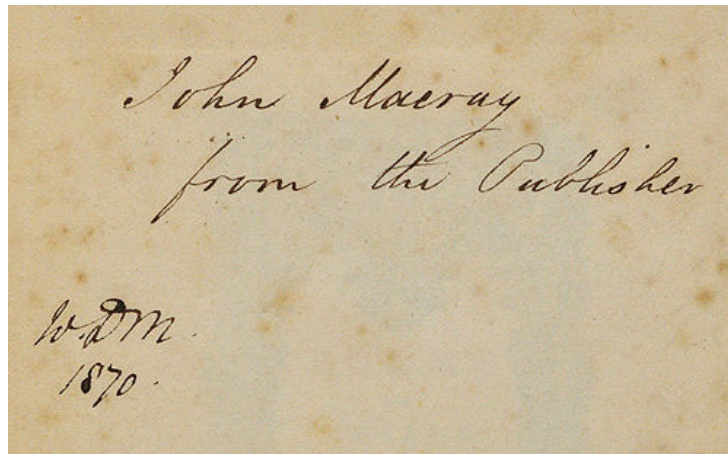 John Macray
from the Publisher
W.D.M.
1870.